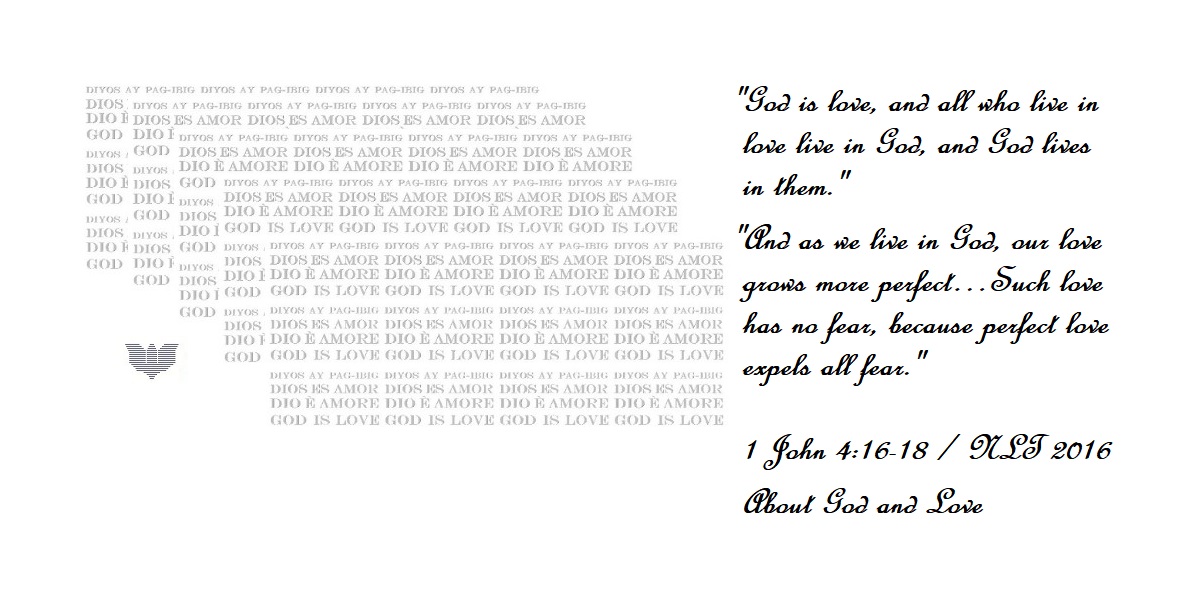 DIYOS AY PAG-IBIG DIYOS AY PAG-IBIG DIYOS AY PAG-IBIG DIYOS AY PAG-IBIG
DIOS DIYOS AY PAG-IBIG DIYOS AY PAG-IBIG DIYOS AY PAG-IBIG DIYOS AY PAG-IBIG
DIO È DIOS ES AMOR DIOS ES AMOR DIOS ES AMOR DIOS ES AMOR
GOD DIO È DIYOS AY PAG-IBIG DIYOS AY PAG-IBIG DIYOS AY PAG-IBIG DIYOS AY PAG-IBIG
DIYOS GOD DIOS ES AMOR DIOS ES AMOR DIOS ES AMOR DIOS ES AMOR
DIOS DIO È AMORE DIO È AMORE DIO È AMORE DIO È AMORE
DIO È DIOS GOD DIYOS AY PAG-IBIG DIYOS AY PAG-IBIG DIYOS AY PAG-IBIG DIYOS AY PAG-IBIG
GOD DIO DIYOS DIOS ES AMOR DIOS ES AMOR DIOS ES AMOR DIOS ES AMOR
DIYOS GOD DIOS DIO È AMORE DIO È AMORE DIO È AMORE DIO È AMORE
DIOS DIO GOD IS LOVE GOD IS LOVE GOD IS LOVE GOD IS LOVE
DIO È DIOS GOD DIYOS DIYOS AY PAG-IBIG DIYOS AY PAG-IBIG DIYOS AY PAG-IBIG DIYOS AY PAG-IBIG
GOD DIO DIYOS DIOS DIOS ES AMOR DIOS ES AMOR DIOS ES AMOR DIOS ES AMOR
GOD DIOS DIO DIO È AMORE DIO È AMORE DIO È AMORE DIO È AMORE
DIO GOD GOD IS LOVE GOD IS LOVE GOD IS LOVE GOD IS LOVE
GOD DIYOS DIYOS AY PAG-IBIG DIYOS AY PAG-IBIG DIYOS AY PAG-IBIG DIYOS AY PAG-IBIG
DIOS DIOS ES AMOR DIOS ES AMOR DIOS ES AMOR DIOS ES AMOR
DIO DIO È AMORE DIO È AMORE DIO È AMORE DIO È AMORE
GOD GOD IS LOVE GOD IS LOVE GOD IS LOVE GOD IS LOVE
DIYOS AY PAG-IBIG DIYOS AY PAG-IBIG DIYOS AY PAG-IBIG DIYOS AY PAG-IBIG
DIOS ES AMOR DIOS ES AMOR DIOS ES AMOR DIOS ES AMOR
DIO È AMORE DIO È AMORE DIO È AMORE DIO È AMORE
GOD IS LOVE GOD IS LOVE GOD IS LOVE GOD IS LOVE
"God is love, and all who live in
love live in God, and God lives
in them."
"And as we live in God, our love
grows more perfect...Such love
has no fear, because perfect love
expels all fear."
1 John 4:16-18 / NLT 2016
About God and Love